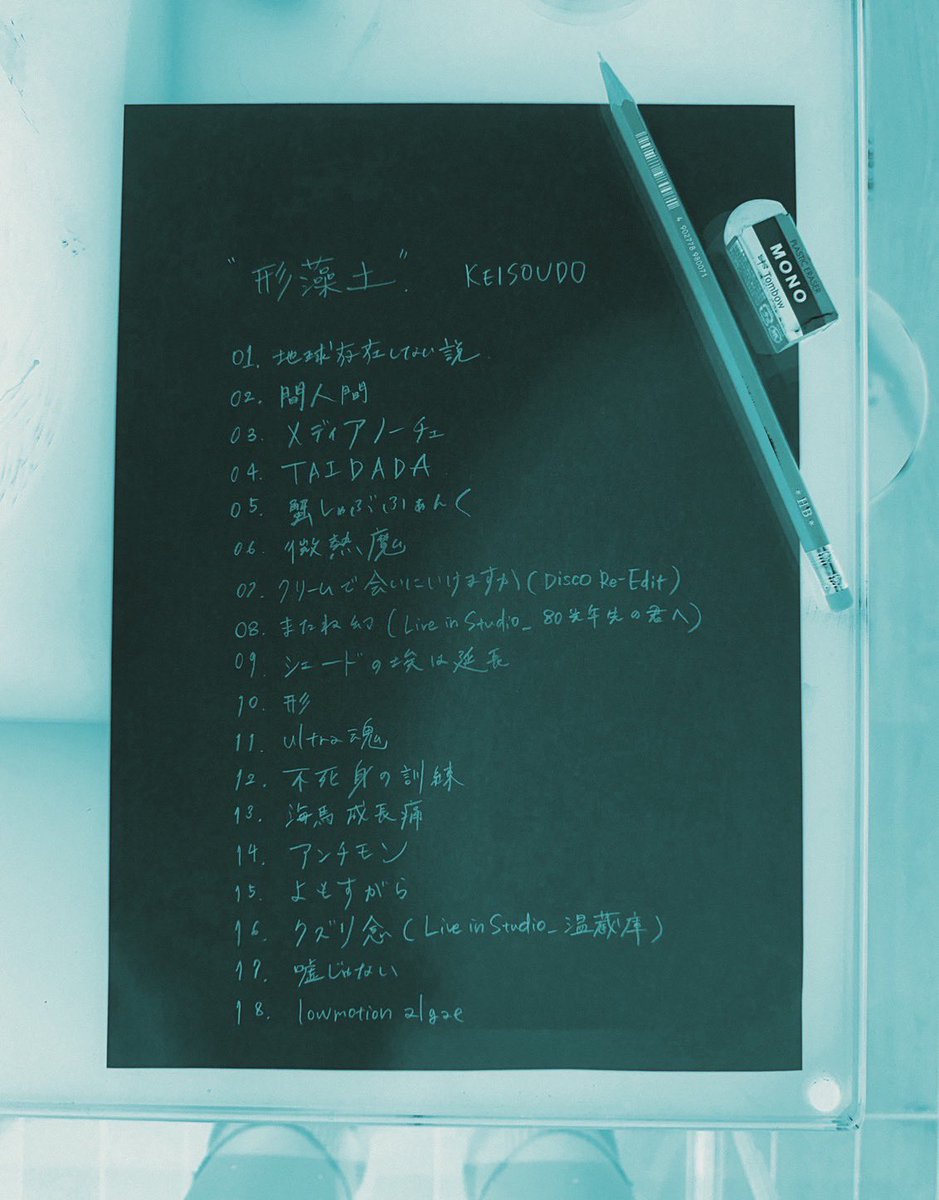 "形藻土". KEISOUDO
01. 地球存在しない説
02. 間人間
03. メディアノーチェ
04. TAIDADA
05. 蟹しゃぶふぁんく
06. 微熱魔
07. クリームで会いにいけますか (Disco Re-Edit)
08. またね幻 (Live in Studio_ 80光年先の君へ)
09. シェードの埃は延長
10. 形
11. ultra魂
12. 不死身の訓練
13. 海馬成長痛
14. アンチモン
15. よもすがら
16. クズリ念 (Live in Studio_ 温蔵庫)
17. 嘘じゃない
18. lowmotion algae
4 902778 980071
* HB *
PLASTIC ERASER
MONO
Tombow